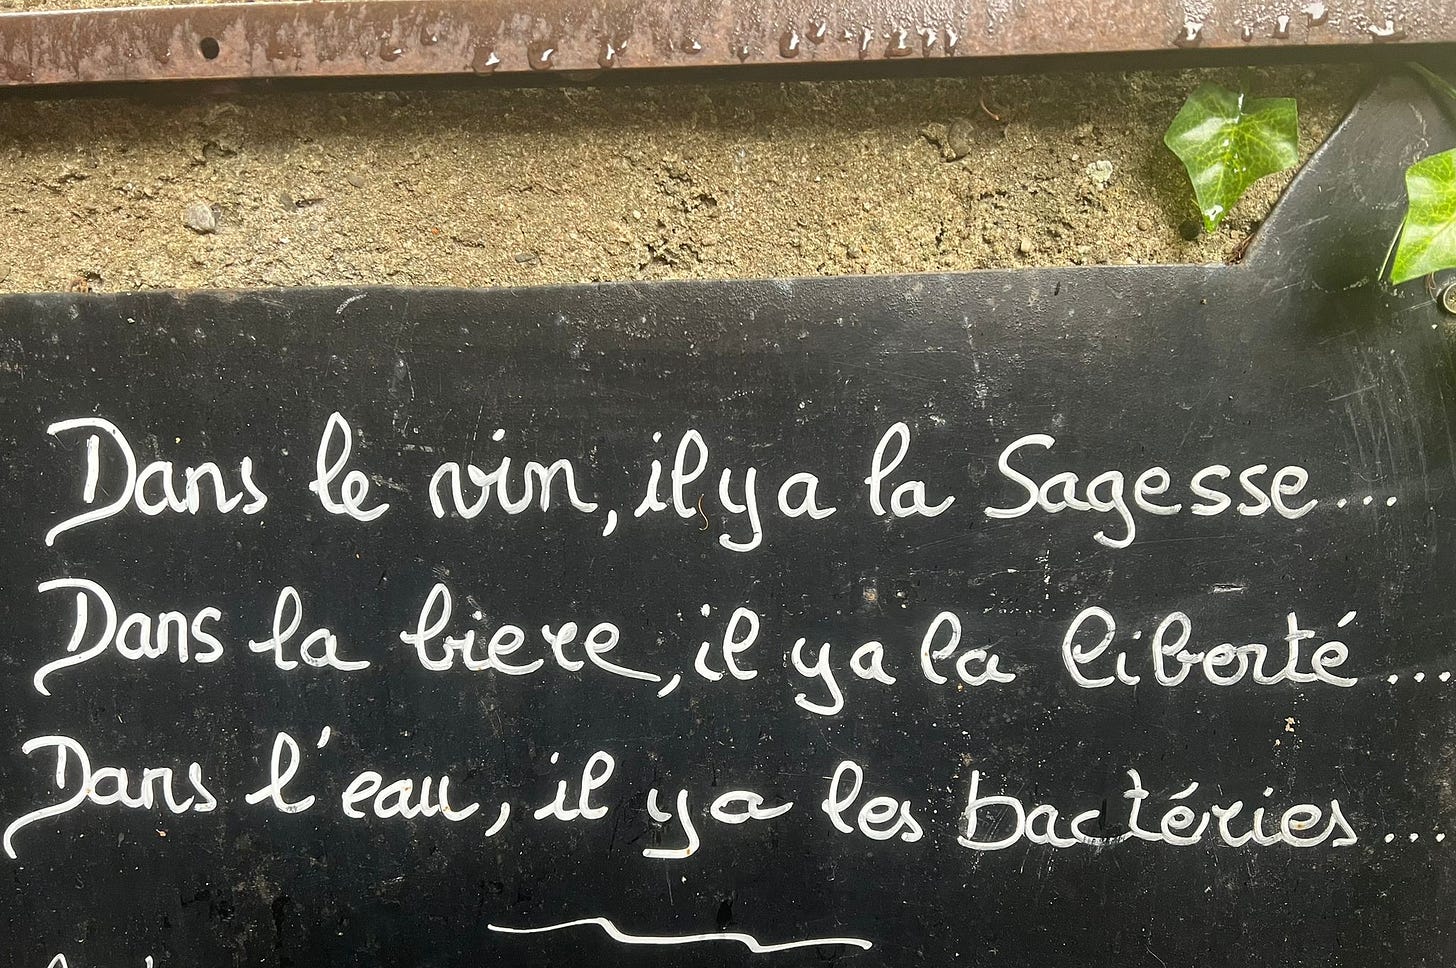 Dans le vin, il y a la Sagesse...
Dans la biere, il y a la liberté...
Dans l'eau, il y a les bactéries...